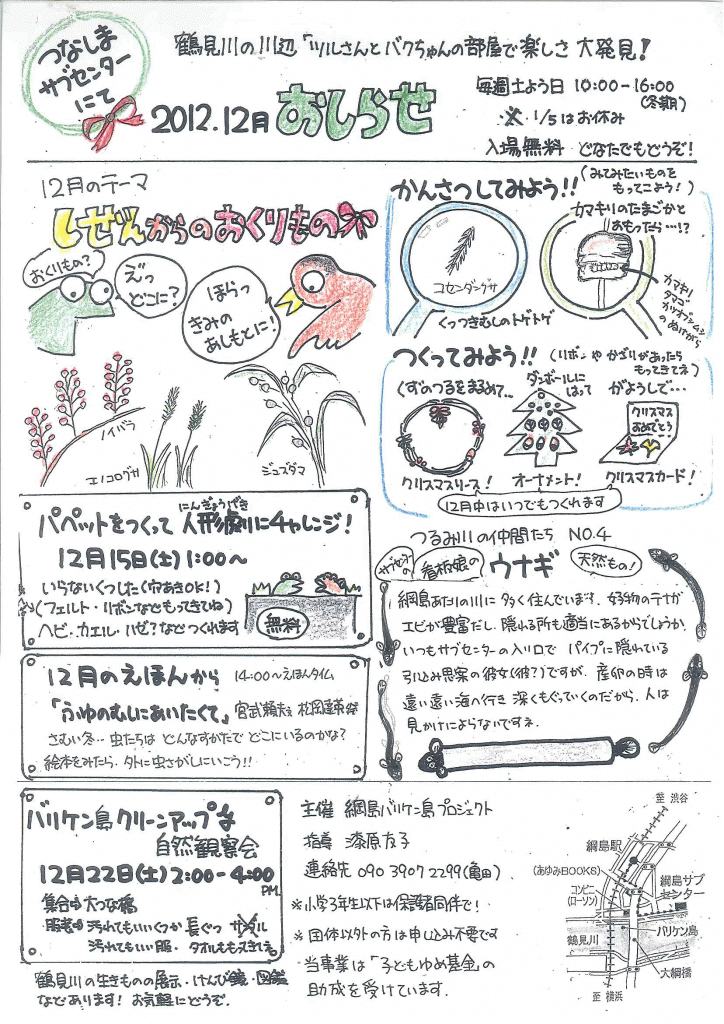 つなしま
サブセンター
にて
鶴見川の川辺「ツルさんとバクちゃんの部屋で楽しさ大発見!
2012.12月 おしらせ
毎週土よう日 10:00-16:00
(冬期)
※ 1/5はお休み
入場無料 どなたでもどうぞ!
12月のテーマ
しぜんからのおくりもの
おくりもの?
えっ
どこに?
ほらっ
きみの
あしもとに!
ノイバラ
エノコログサ
ジュズダマ
かんさつしてみよう!!
(みてみたいものを
もってこよう!)
コセンダングサ
くっつきむしのトゲトゲ
カマキリのたまごかと
おもったら…!?
カマキリ
タマゴ
カツオブシムシ
のぬけがら
つくってみよう!!
(リボンやかざりがあったら
もってきてネ)
くずのつるをまるめて…
クリスマスリース!
ダンボールに
はって
オーナメント!
がようしで…
クリスマス
おめでとう
クリスマスカード!
12月中はいつでもつくれます
にんぎょうげき
パペットをつくって人形劇にチャレンジ!
12月15日(土)1:00〜
いらないくつした(穴あきOK!)
(フェルト・リボンなどもってきてね)
ヘビ、カエル、ハゼ?などつくれます
無料
つるみ川の仲間たち NO.4
サブセンターの
看板娘の
ウナギ
天然もの!
綱島あたりの川に多く住んでいます。好物のテナガ
エビが豊富だし、隠れる所も適当にあるからでしょうか。
いつもサブセンターの入り口で パイプに隠れている
引込み思案の彼女(彼?)ですが、産卵の時は
遠い遠い海へ行き 深くもぐっていくのだから、人は
見かけによらないですネ。
12月のえほんから 14:00〜えほんタイム
「ふゆのむしにあいたくて」
さむい冬…虫たちは どんなすがたで どこにいるのかな?
絵本をみたら、外に虫さがしにいこう!!
バリケン島クリーンアップ&
自然観察会
12月22日(土)2:00-4:00
PM.
集合 大つな橋
服装 汚れてもいいくつか長ぐつ
汚れてもいい服、タオルももってきてネ
鶴見川の生きものの展示・けんび鏡・図鑑
などあります!お気軽にどうぞ。
主催 綱島バリケン島プロジェクト
指導 漆原友子
連絡先 090 3907 2299(亀田)
※小学3年生以下は保護者同伴で!
※団体以外の方は申し込み不要です
当事業は「子どもゆめ基金」の
助成を受けています。
至 渋谷
綱島駅
(あゆみBOOKS)
綱島サブ
センター
コンビニ
(ローソン)
バリケン島
鶴見川
大綱橋
至 横浜